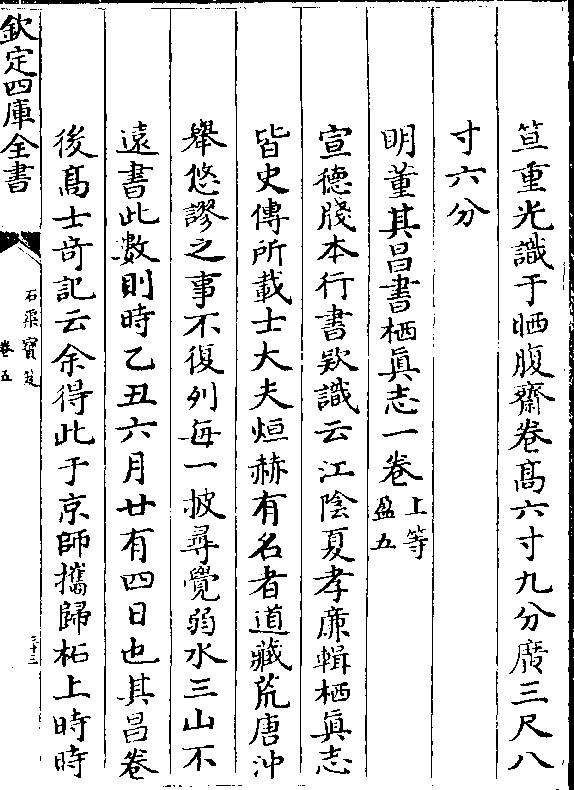 笪重光識于晒腹齋卷髙六寸九分廣三尺八
寸六分
明董其昌書栖眞志一卷上等盈五
宣德牋本行書欵識云江陰夏孝廉輯栖眞志
皆史傳所載士大夫烜赫有名者道藏荒唐沖
舉悠謬之事不復列每一披尋覺弱水三山不
遠書此數則時乙丑六月廿有四日也其昌卷
後髙士奇記云余得此于京師攜歸柘上時時
欽定四庫全書
石渠寶笈
卷五
三十三